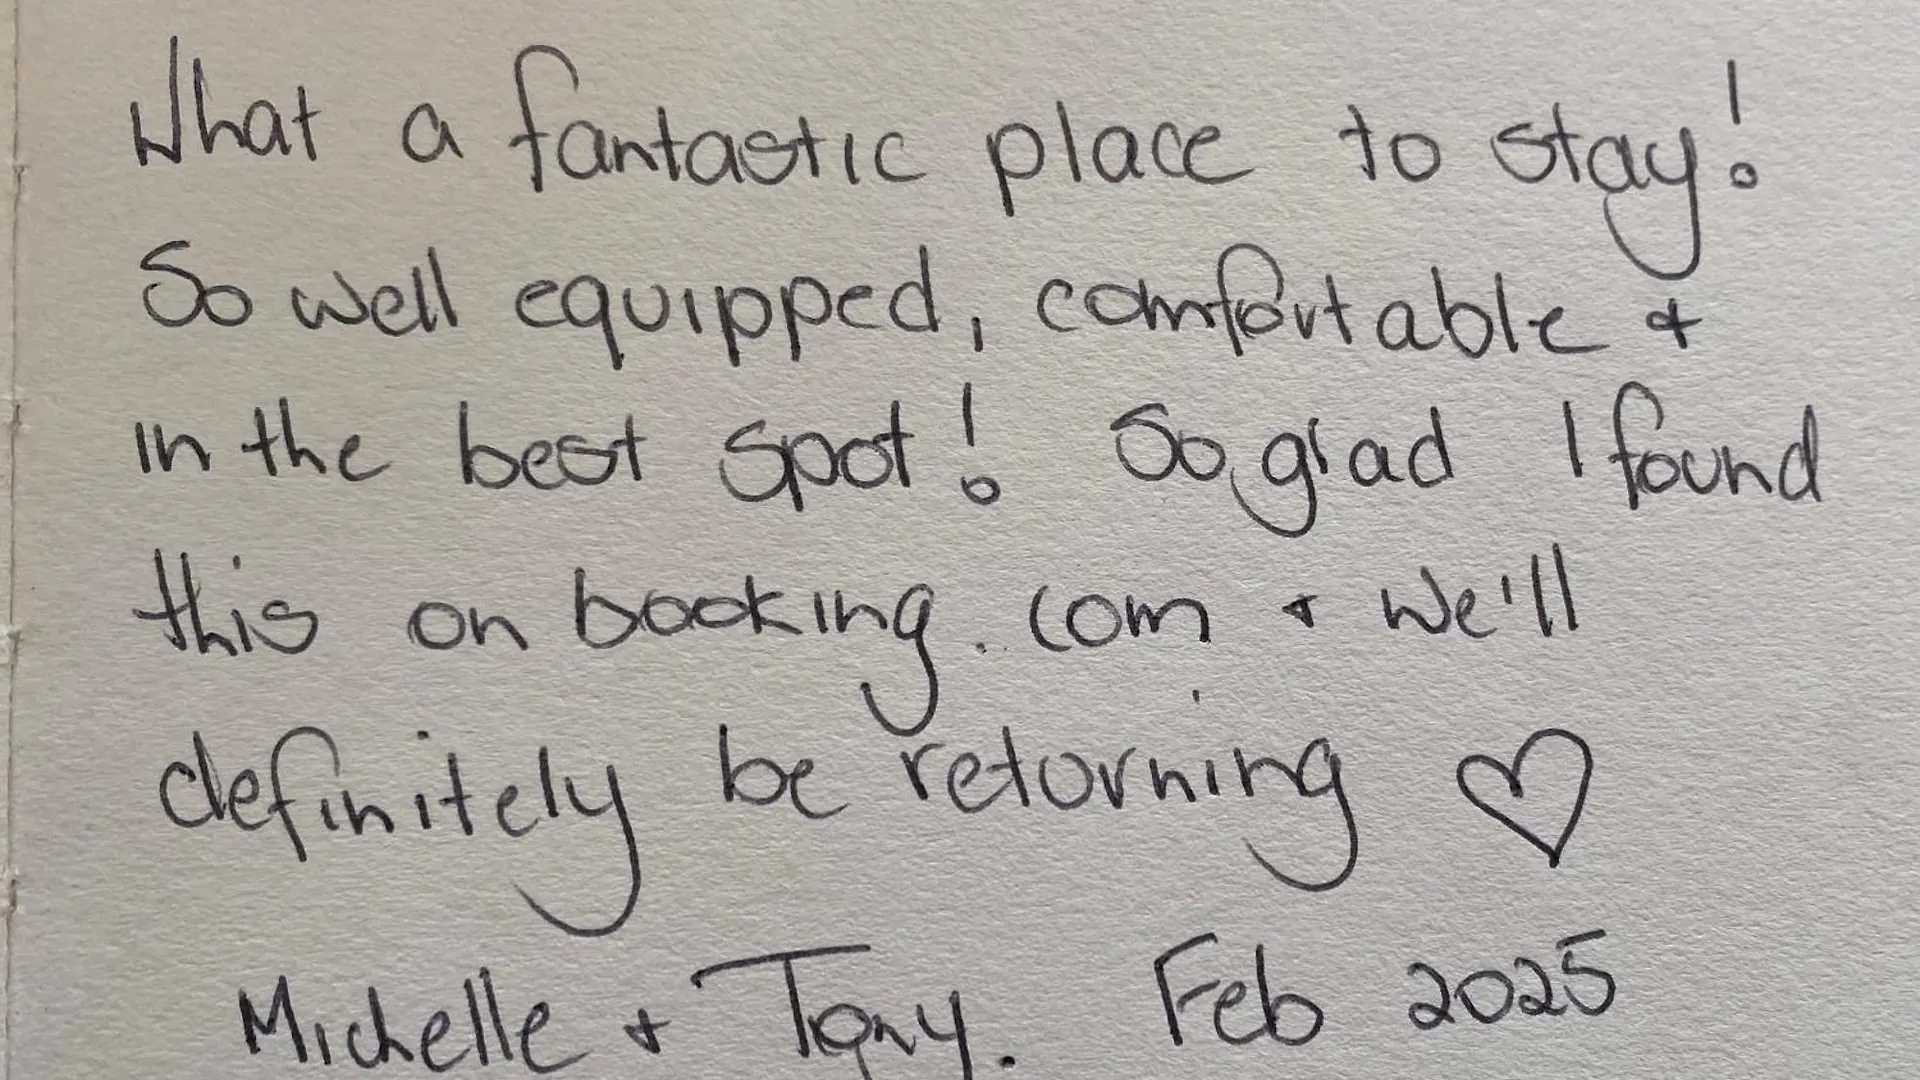 What a fantastic place to stay!
So well equipped, comfortable +
in the best spot! So glad I found
this on booking.com + we'll
definitely be returning ♡
Michelle + Tony. Feb 2025